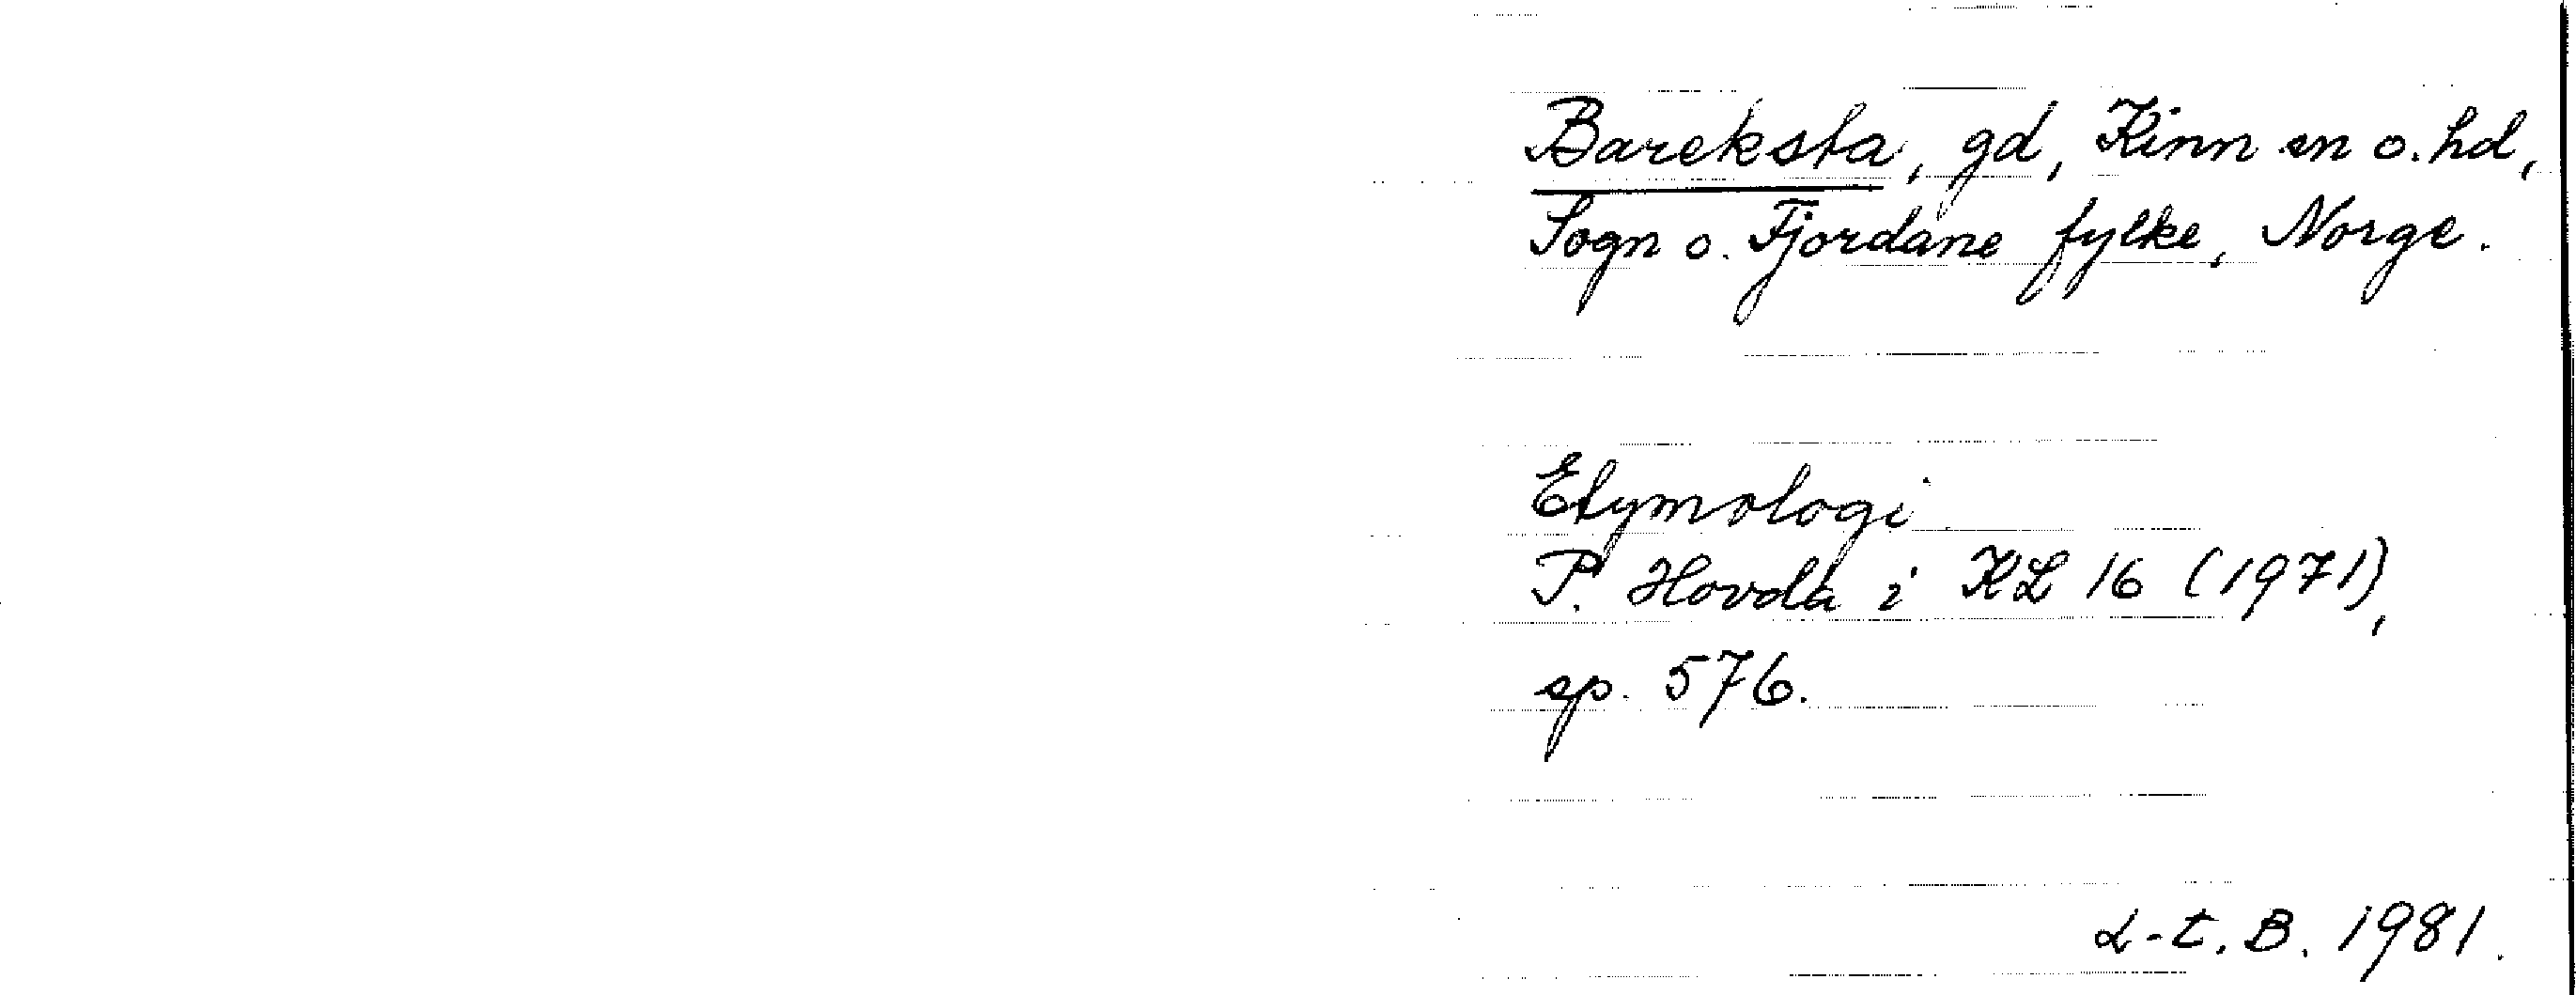 Bareksta, gd, Kinn sn o. hd,
Sogn o. Fjordane fylke, Norge.
Etymologi
P. Hovda i KL 16 (1971),
sp. 576.
L-t. B. 1981.